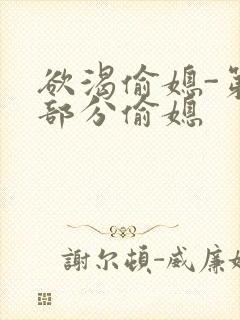 欲渴偷媳-第
部分偷媳
謝尔頓-威廉姆